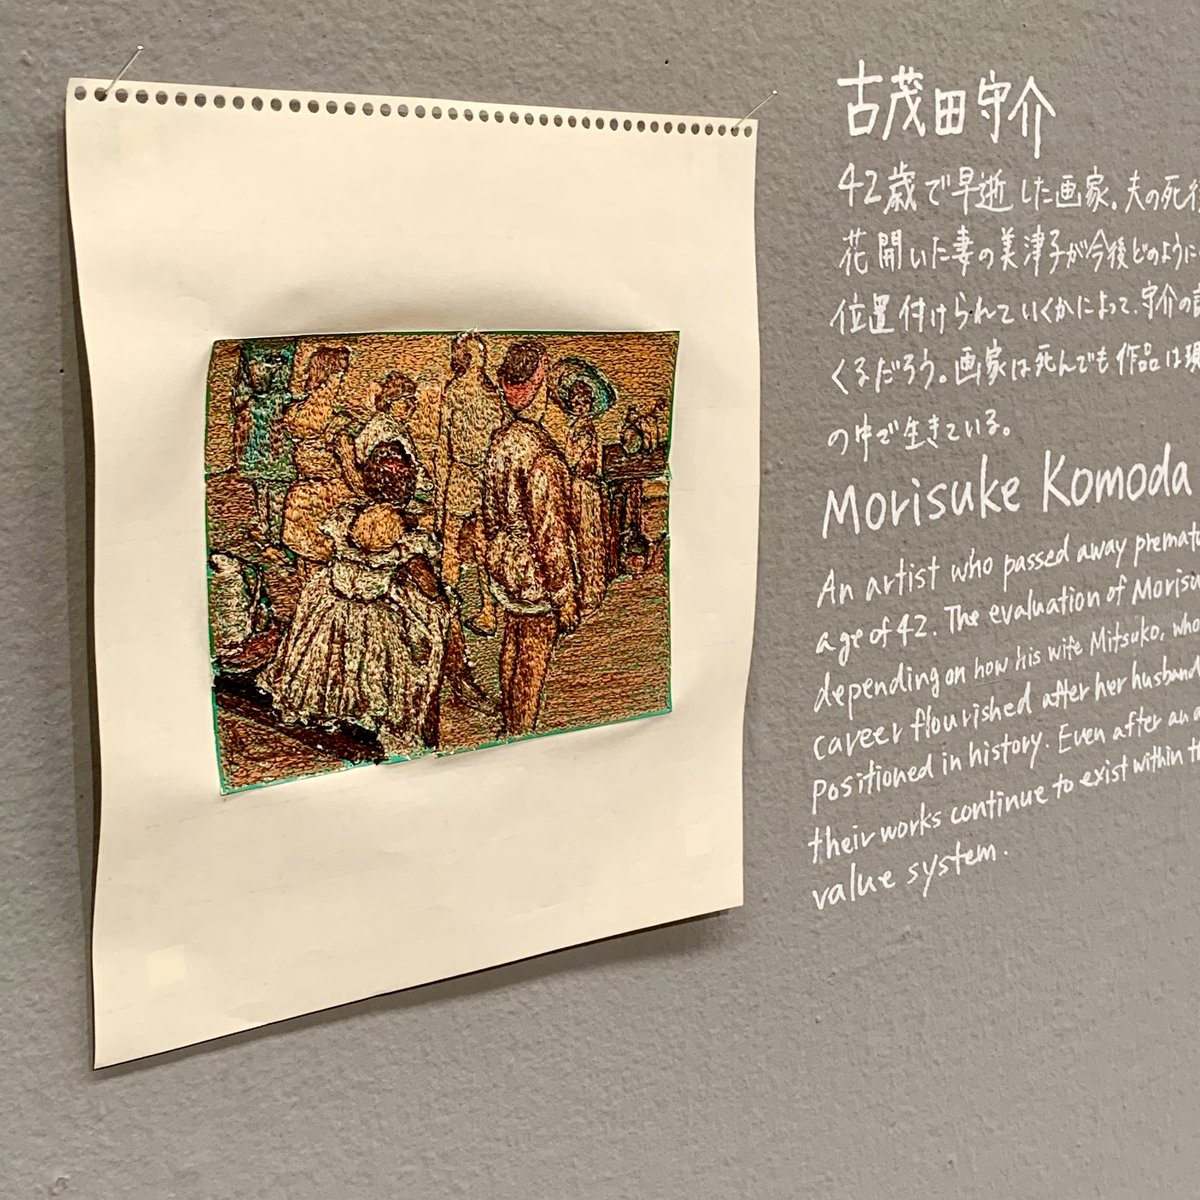 古茂田守介
42歳で早逝した画家。夫の死後
花開いた妻の美津子が今後どのように
位置付けられていくかによって、守介の
くるだろう。画家は死んでも作品は
の中で生きている。
Morisuke Komoda
An artist who passed away
age of 42. The evaluation of
depending on how his wife Mitsuko, who
career flourished after her husband
positioned in history. Even after an
their works continue to exist within
value system.